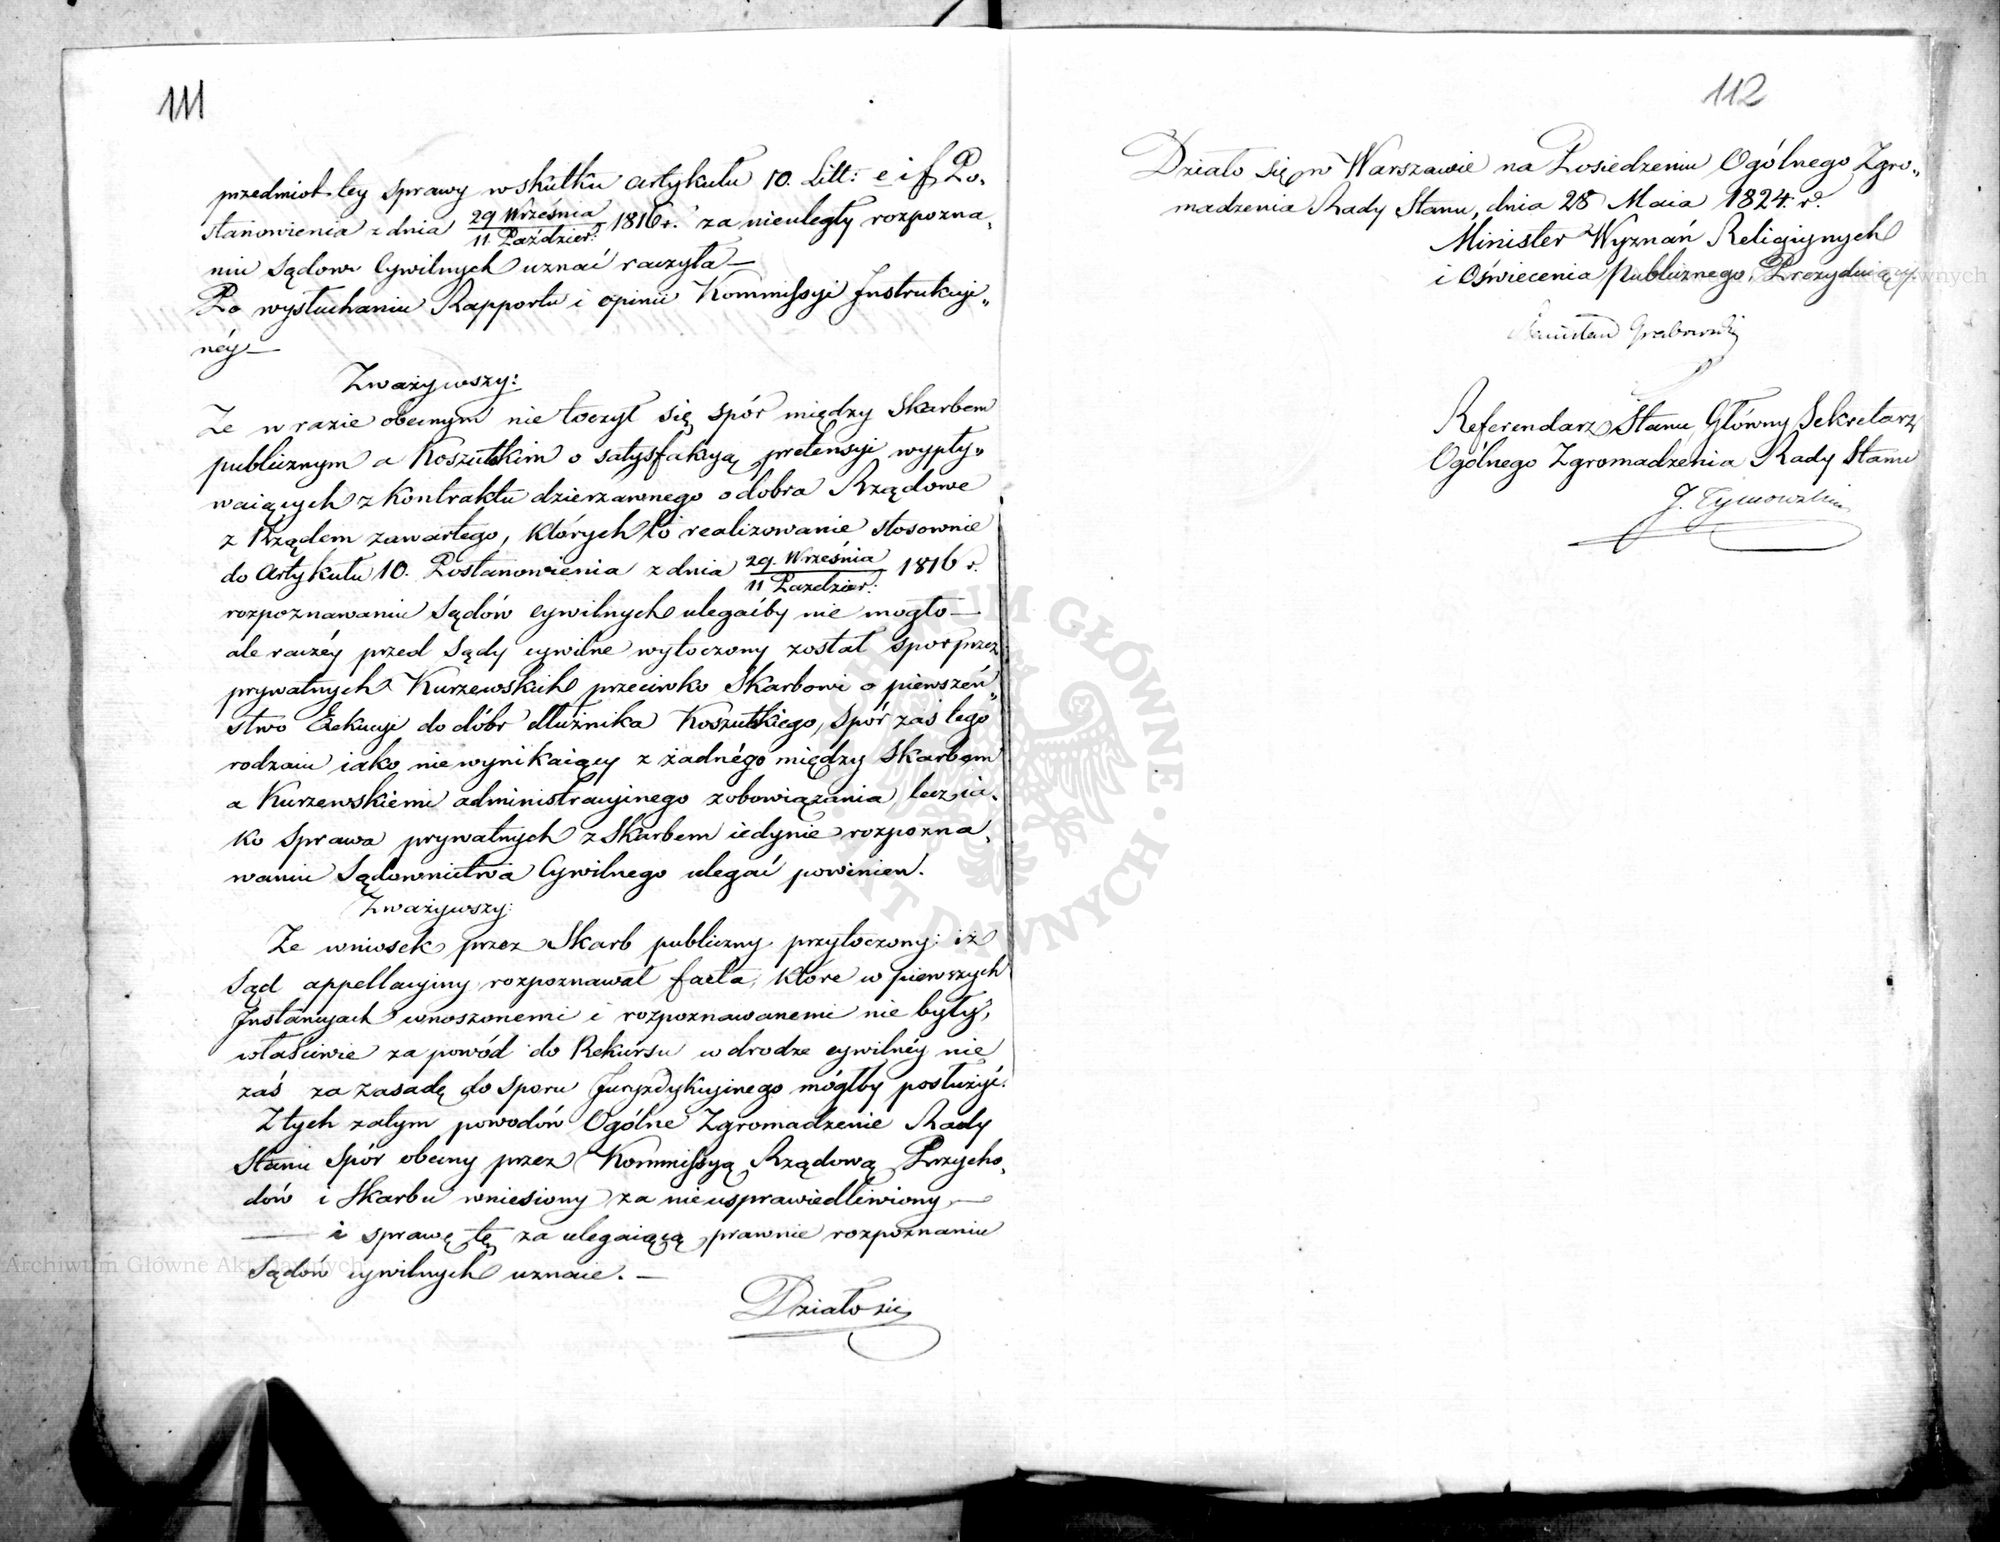 111
przedmiot tey sprawy w skutku artykułu 10. Litt: e i f Po„
stanowienia z dnia 29 Września / 11. Paździer: 1816 r. za nieuległy rozpozna„
niu Sądów Cywilnych uznać raczyła —
Po wysłuchaniu Rapportu i opinii Kommissyi Instrukcyi„
néy —
Zważywszy:
Że w razie obecnym nie toczył się spór między Skarbem
publicznym a Koszutskim o satysfakcyą pretensyi wypły„
waiących z kontraktu dzierzawnego o dobra Rządowe
z Rządem zawartego, których to realizowanie stosownie
do Artykułu 10. Postanowienia z dnia 29. Września / 11 Paździer: 1816 r.
rozpoznawaniu Sądów cywilnych ulegaćby nie mogło —
ale raczéy przed Sądy cywilne wytoczony został spor przez
prywatnych Kurzewskich przeciwko Skarbowi o pierwszeń„
stwo Exekucyi do dóbr dłużnika Koszutskiego, spór zaś tego
rodzaiu iako nie wynikaiący z żadnégo między Skarbem
a Kurzewskiemi administracyinego zobowiązania, lecz ia„
ko sprawa prywatnych z Skarbem iedynie rozpozna„
waniu Sądownictwa Cywilnego ulegać powinien.
Zważywszy:
Że wniosek przez Skarb publiczny przytoczony: iż
Sąd appellacyiny rozpoznawał facta, które w pierwszych
Instancyach wnoszonemi i rozpoznawanemi nie były,
właściwie za powód do Rekursu w drodze cywilnéy nie
zaś za zasadę do sporu Juryzdykcyinego mógłby posłużyć.
Z tych zatym powodów Ogólne Zgromadzenie Rady
Stanu Spór obecny przez Kommissyą Rządową Przycho„
dów i Skarbu wniesiony za nieusprawiedliwiony —
— i sprawę tę za ulegaiącą prawnie rozpoznaniu
Sądów cywilnych uznaie. —
Działo się
112
Działo się w Warszawie na Posiedzeniu Ogólnego Zgro„
madzenia Rady Stanu, dnia 28 Maia 1824. r.
Minister Wyznań Religiynych
i Oświecenia Publicznego, Prezyduiący.
Stanisław Grabowski
Referendarz Stanu, Główny Sekretarz
Ogólnego Zgromadzenia Rady Stanu
J. Tymowski
ARCHIWUM GŁÓWNE · AKT DAWNYCH ·
Archiwum Główne Akt Dawnych